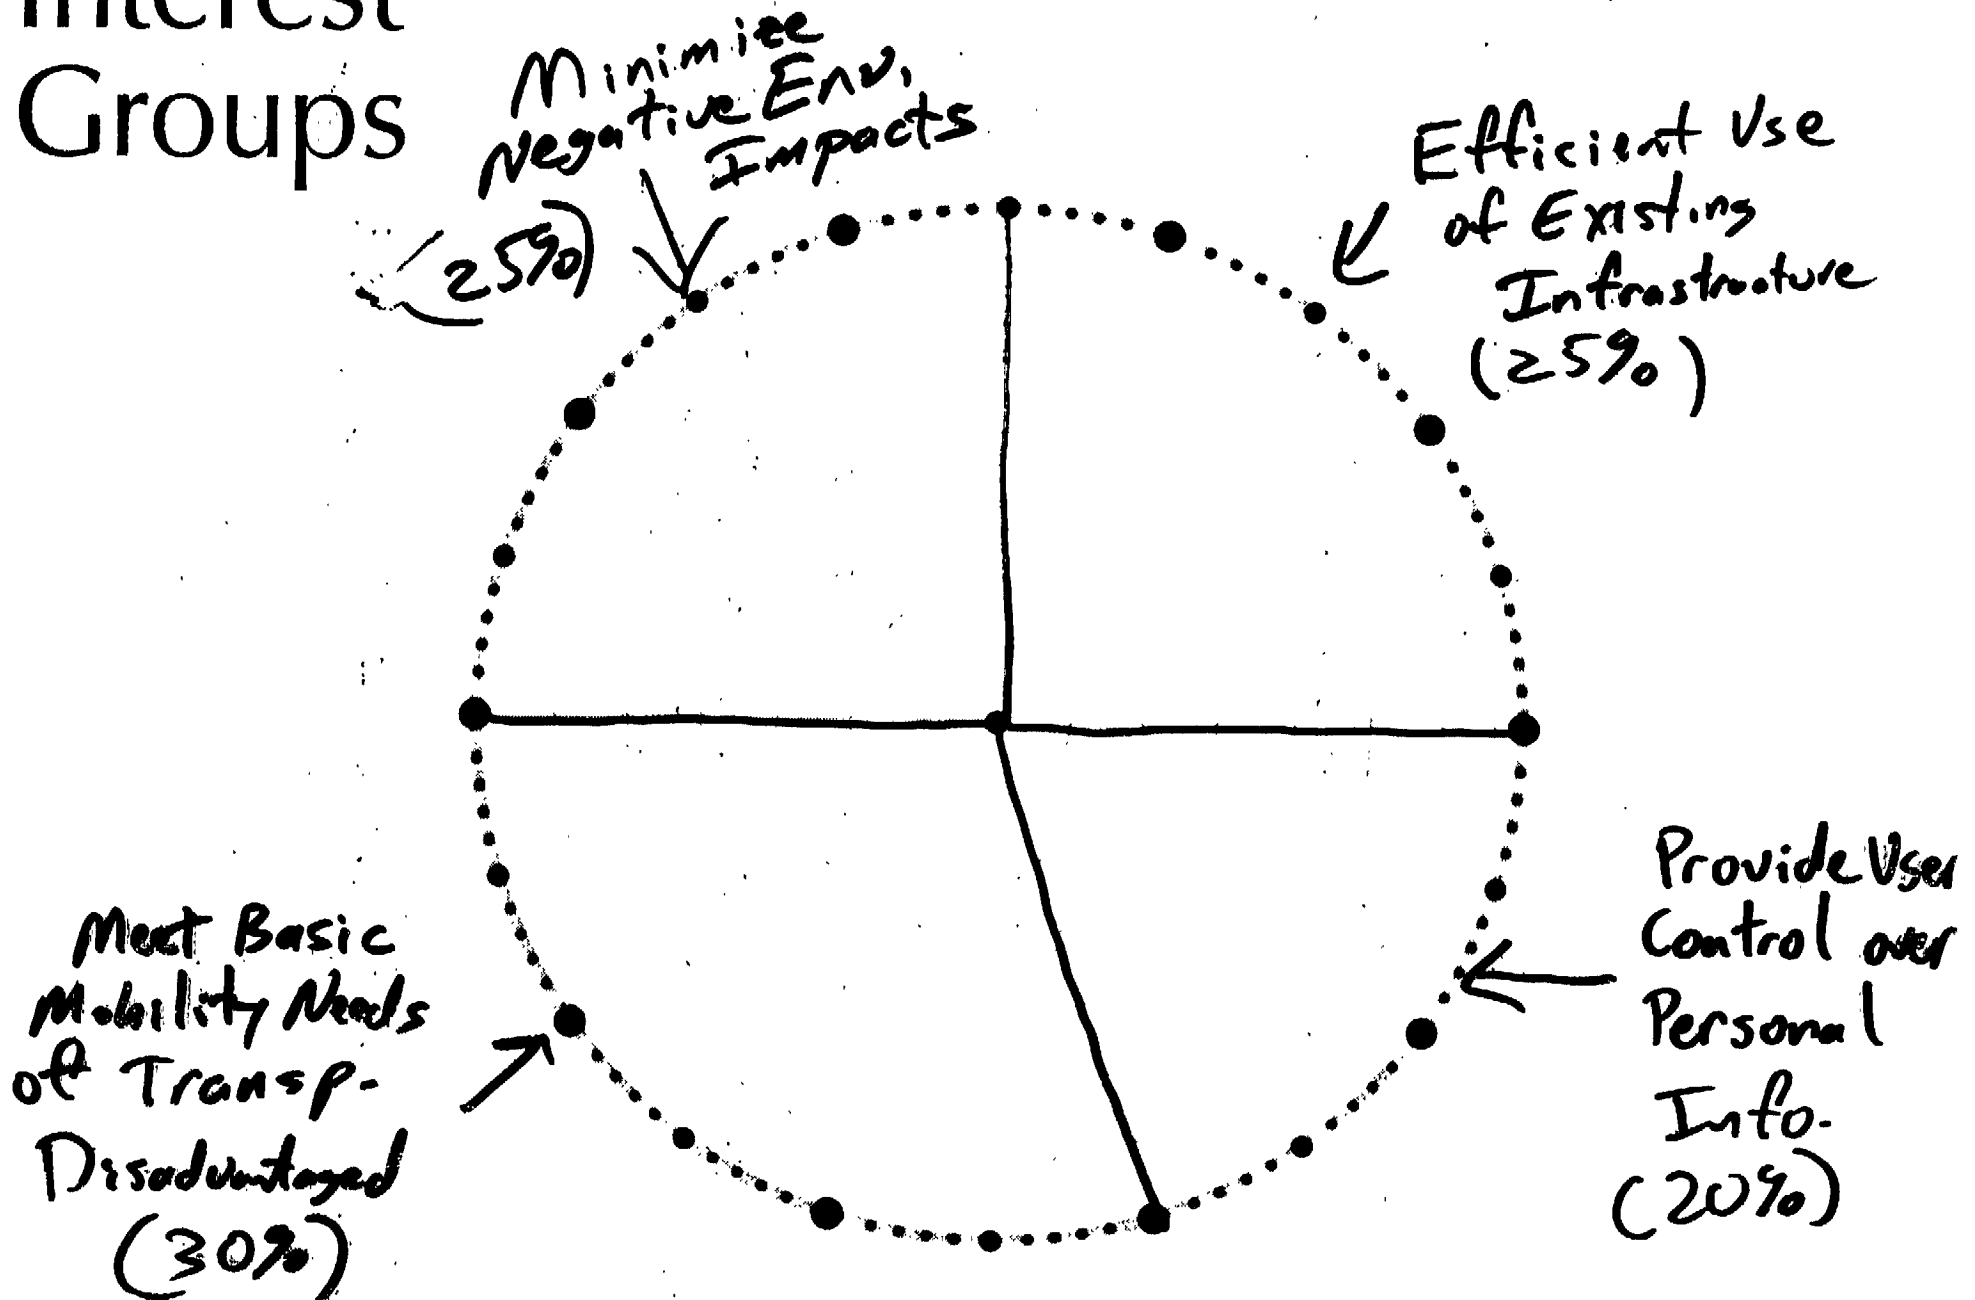 Interest
Groups
Minimize
Negative Env.
Impacts
(25%)
Efficient Use
of Existing
Infrastructure
(25%)
Provide User
Control over
Personal
Info.
(20%)
Meet Basic
Mobility Needs
of Transp-
Disadvantaged
(30%)